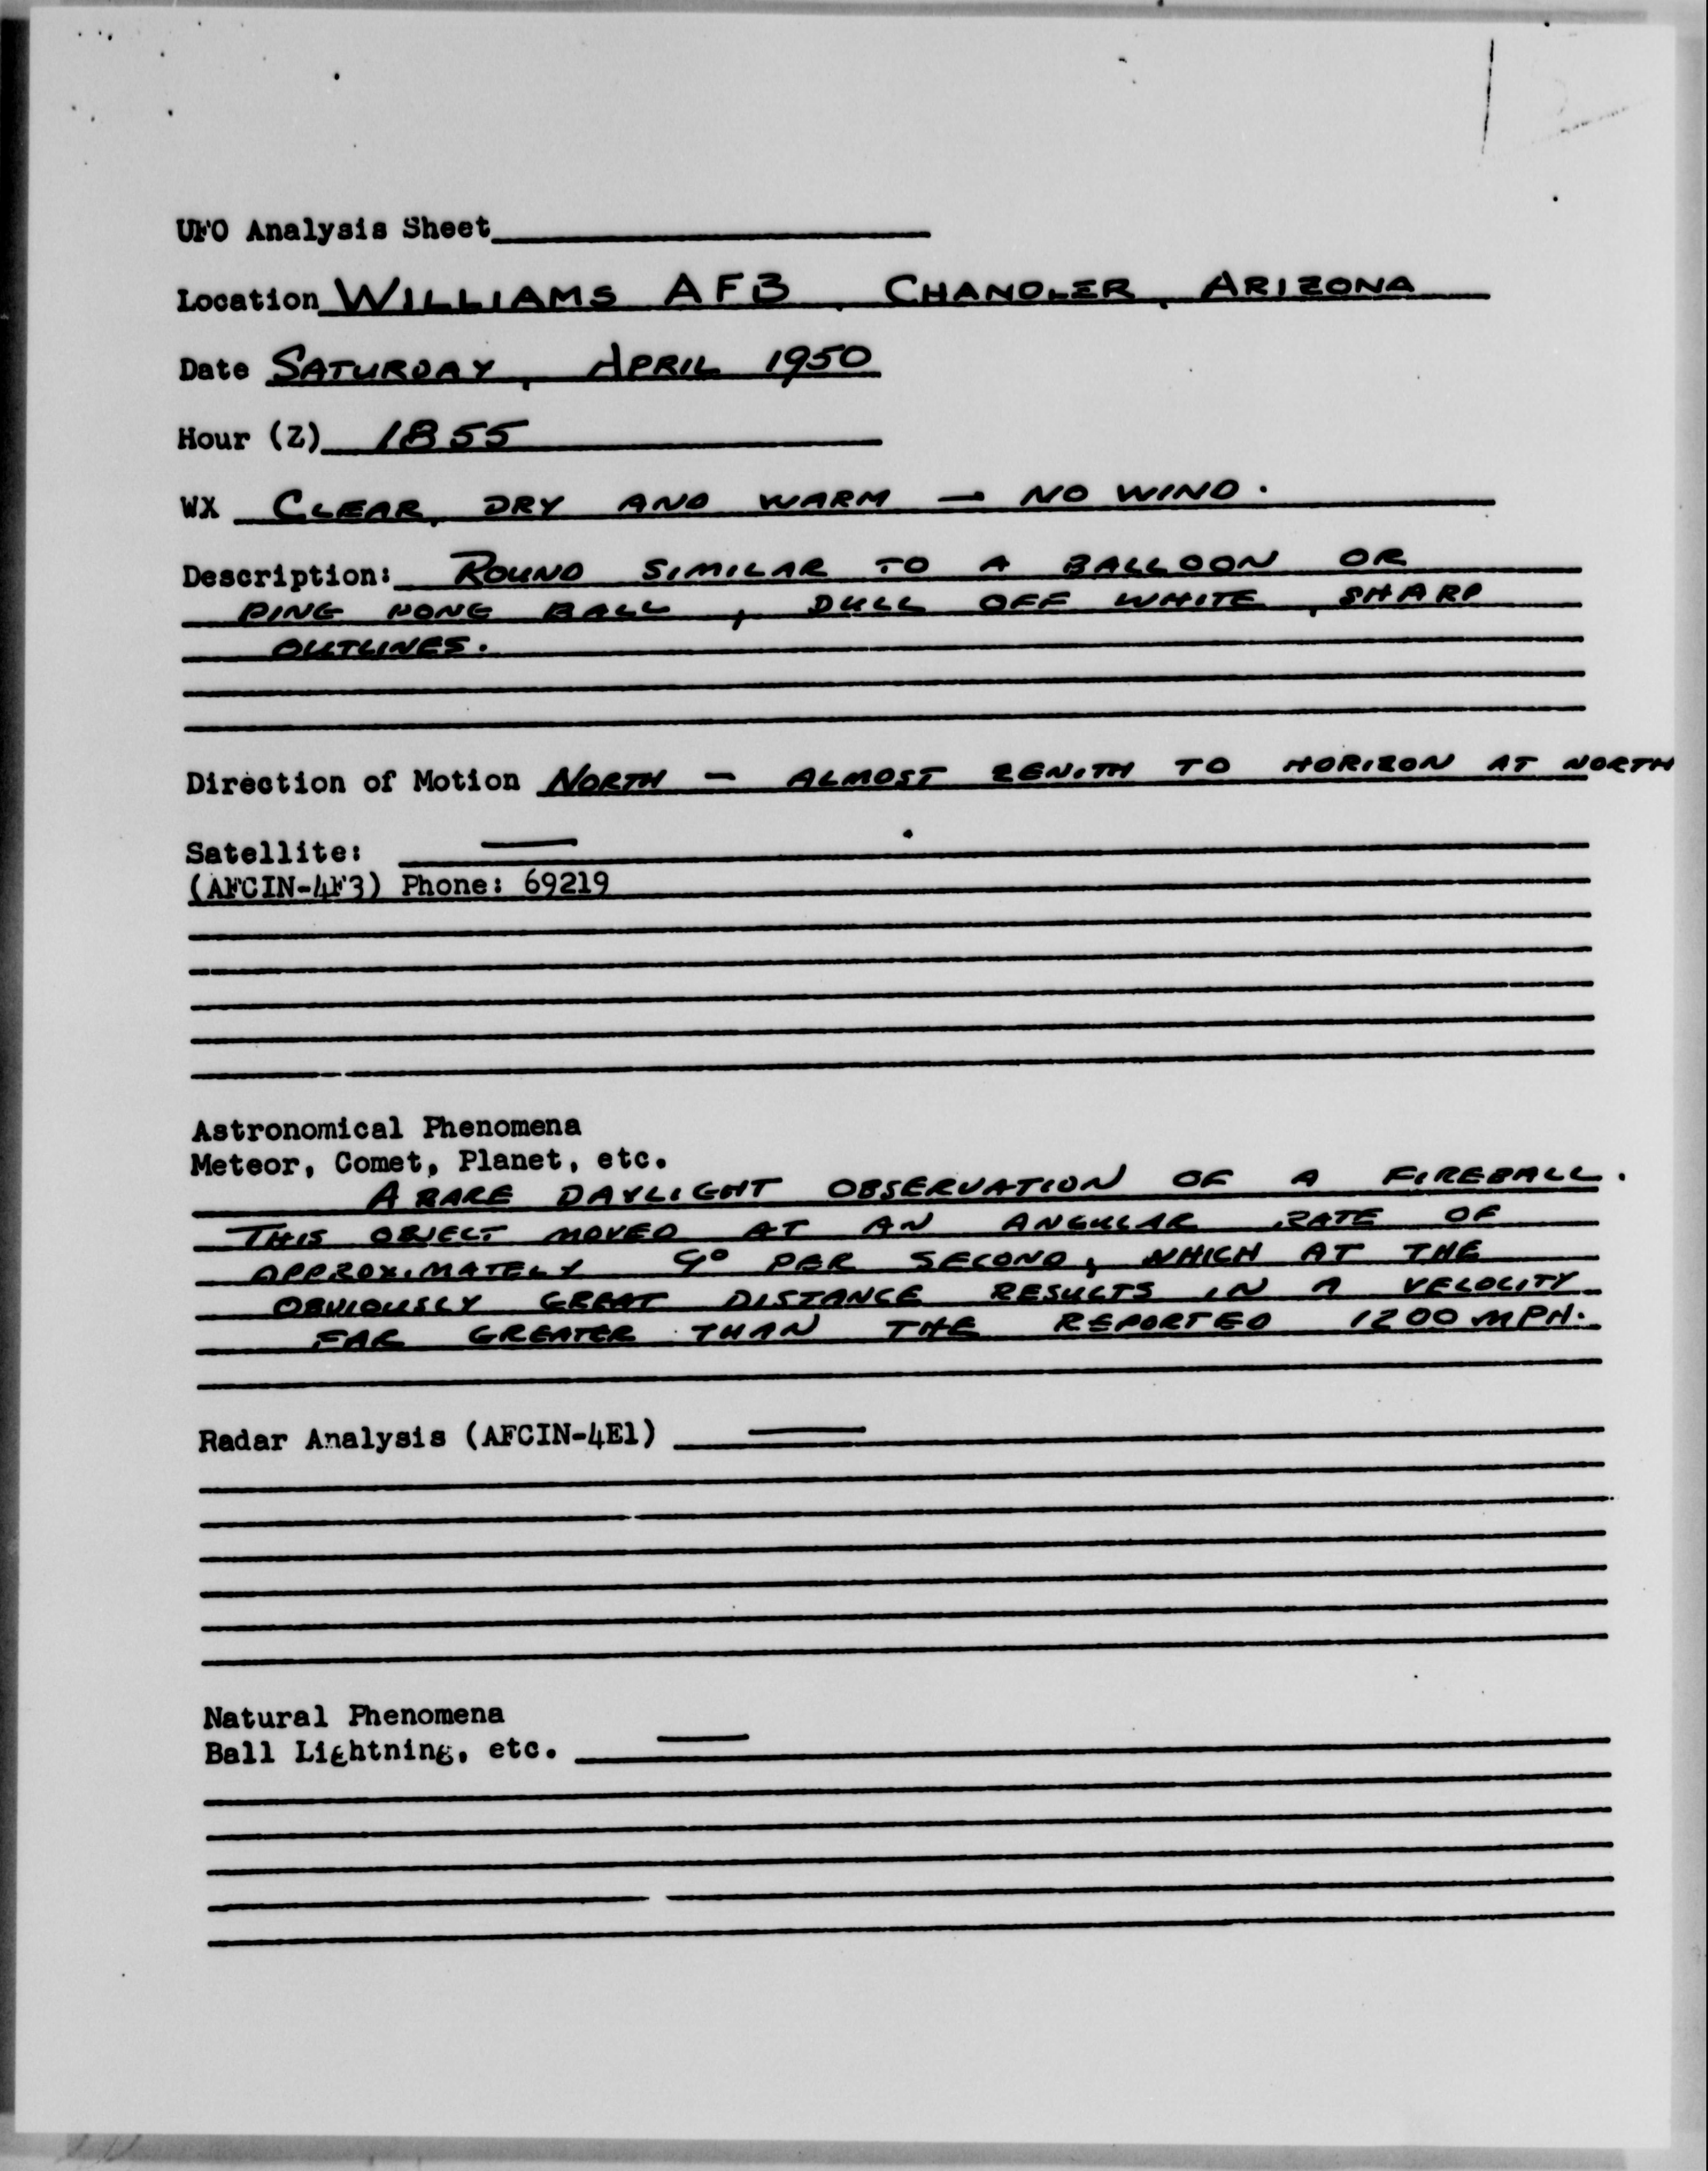 UFO Analysis Sheet
Location WILLIAMS AFB, CHANDLER, ARIZONA
Date SATURDAY, APRIL 1950
Hour (Z) 1855
WX CLEAR, DRY AND WARM — NO WIND.
Description: ROUND SIMILAR TO A BALLOON OR
PING PONG BALL, DULL OFF WHITE, SHARP
OUTLINES.
Direction of Motion NORTH — ALMOST ZENITH TO HORIZON AT NORTH
Satellite: —
(AFCIN-4F3) Phone: 69219
Astronomical Phenomena
Meteor, Comet, Planet, etc.
A RARE DAYLIGHT OBSERVATION OF A FIREBALL.
THIS OBJECT MOVED AT AN ANGULAR RATE OF
APPROXIMATELY 9° PER SECOND, WHICH AT THE
OBVIOUSLY GREAT DISTANCE RESULTS IN A VELOCITY
FAR GREATER THAN THE REPORTED 1200 MPH.
Radar Analysis (AFCIN-4E1) —
Natural Phenomena
Ball Lightning, etc. —